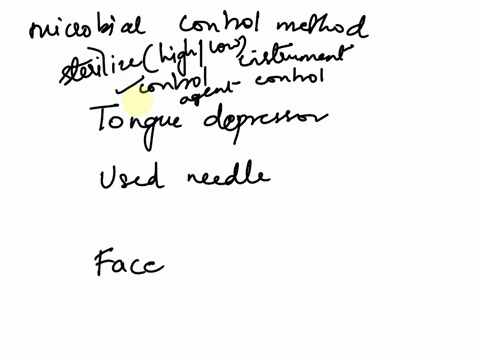 microbial control method
sterilize (high/low) instrument
✓control agent control
Tongue depressor
Used needle
Face